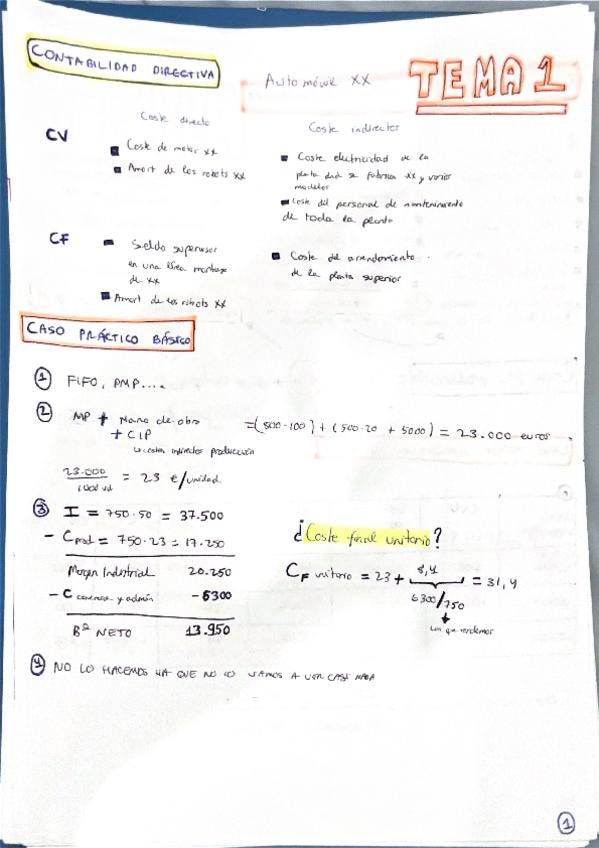 CONTABILIDAD DIRECTIVA
Automóvil XX
TEMA 1
Coste directo
Coste indirectos
CV
Coste de motor xx
Amort de los robots XX
Coste electricidad de la
planta dnd se fabrica xx y varios
modelos
Coste del personal de mantenimiento
de toda la planta
CF
Sueldo supervisor
en una línea montaje
de xx
Amort de los robots xx
Coste del arrendamiento
de la planta superior
CASO PRÁCTICO BÁSICO
① FIFO, PMP....
② MP + Mano de obra
+ CIP
costes indirectos producción
= (500·100) + (500·20 + 5000) = 23.000 euros
23.000
1000 ud
= 23 €/unidad
③ I = 750·50 = 37.500
- C prod = 750·23 = 17.250
Margen Industrial 20.250
- C comercia y admón -6300
Bº NETO 13.950
¿Coste final unitario?
CF unitario = 23 + 8,4 = 31,4
6300/750
los que vendemos
④ NO LO HACEMOS YA QUE NO LO VAMOS A VER CASI NADA
①